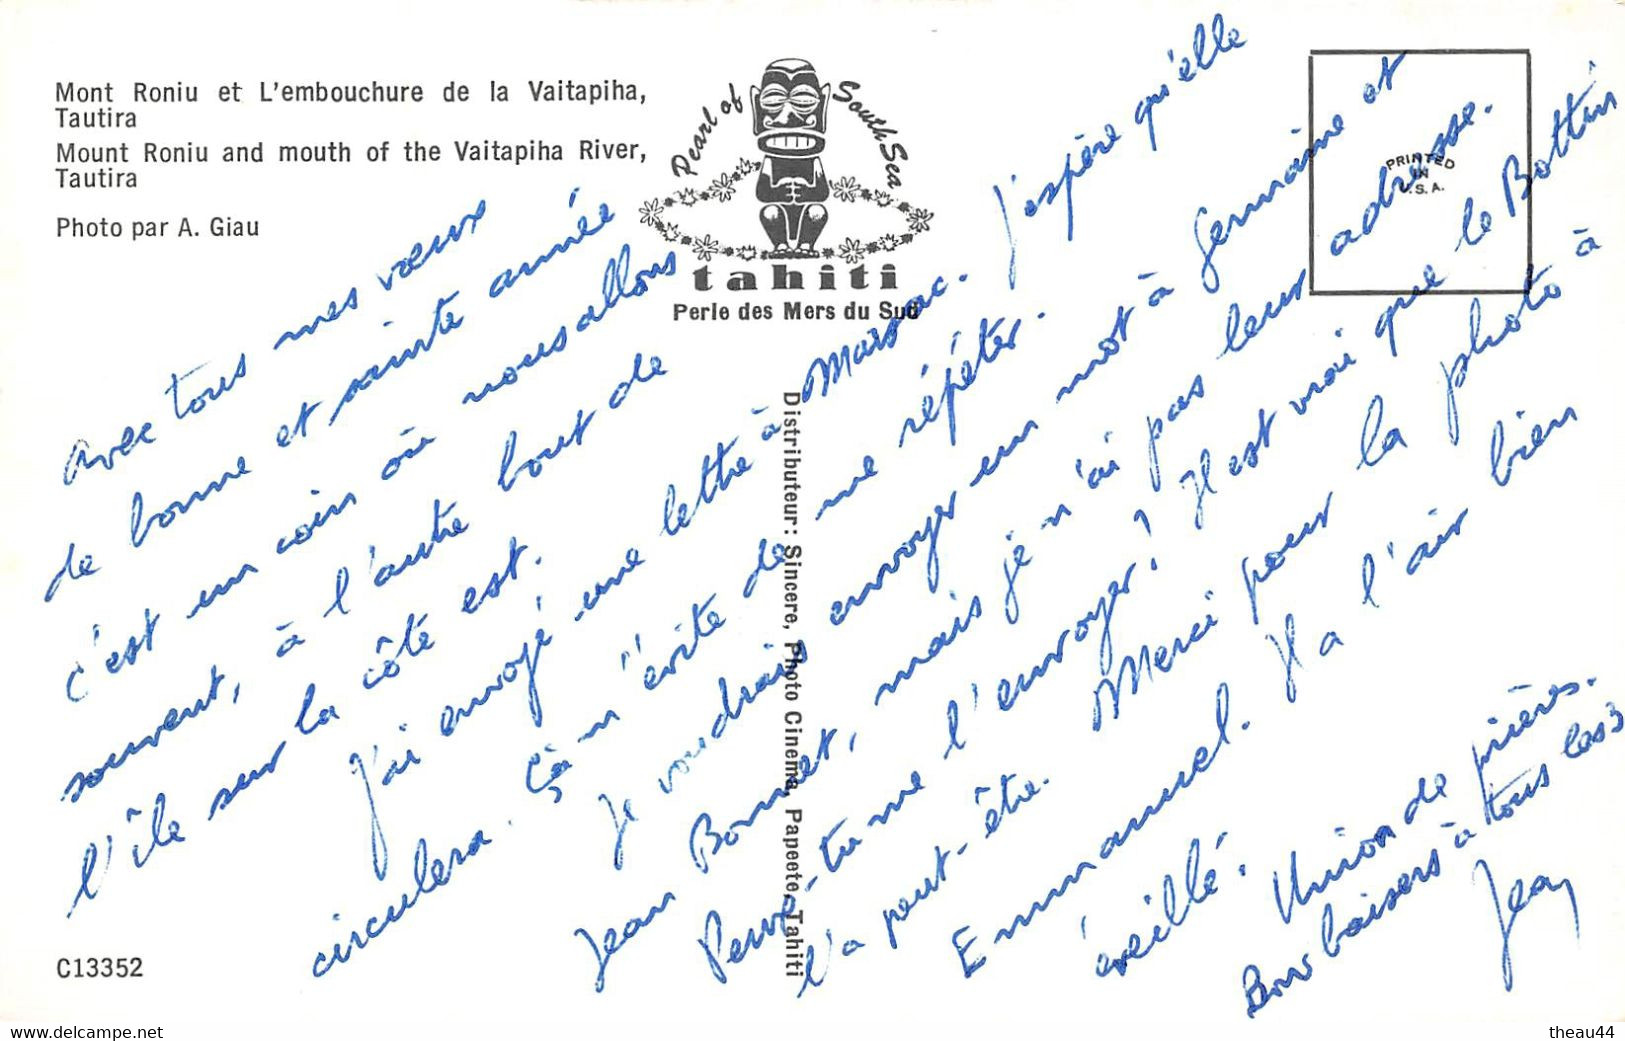 Mont Roniu et L'embouchure de la Vaitapiha,
Tautira
Mount Roniu and mouth of the Vaitapiha River,
Tautira
Photo par A. Giau
Pearl of South Sea
tahiti
Perle des Mers du Sud
PRINTED
IN
U.S.A.
Distributeur: Sincere, Photo Cinema, Papeete, Tahiti
C13352
Avec tous mes vœux
de bonne et sainte année
c'est un coin où nous allons
souvent, à l'autre bout de
l'île sur la côte est.
J'ai envoyé une lettre à Marsac. J'espère qu'elle
circulera. Çà m'évite de me répéter.
Je voudrais envoyer un mot à Germaine et
Jean Bonnet, mais je n'ai pas leur adresse.
-tu me l'envoyer? Il est vrai que le Bottin
l'a peut-être. Merci pour la photo à
Emmanuel. Il a l'air bien
éveillé. Union de prières.
Bons baisers à tous les 3
Jean
www.delcampe.net
theau44